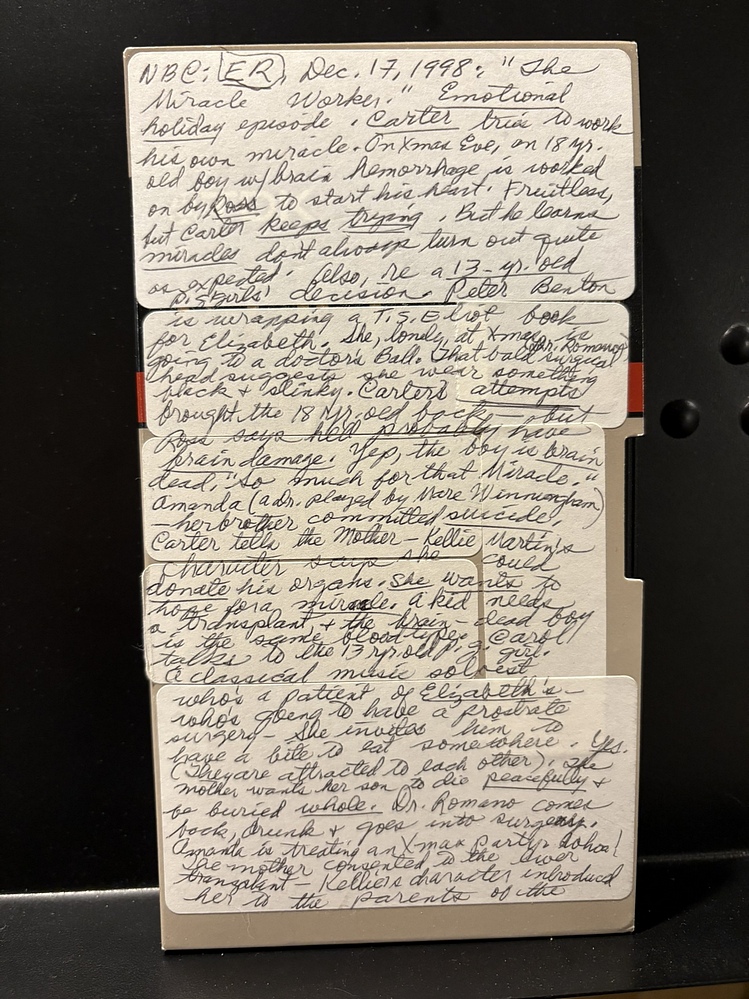 NBC: ER, Dec. 17, 1998: "The
Miracle Worker." Emotional
holiday episode. Carter tries to work
his own miracle. On Xmas Eve, an 18 yr.
old boy w/ brain hemorrhage is worked
on by Ross to start his heart. Fruitless,
but Carter keeps trying. But he learns
miracles don't always turn out quite
as expected. Also, re a 13-yr. old
p.g. girls' decision. Peter Benton
is wrapping a T.S. Eliot book
for Elizabeth. She, lonely at Xmas, is
going to a doctor's Ball. That bald surgical
(Dr. Romano)
head suggests she wear something
black + slinky. Carter's attempts
brought the 18 yr. old back – but
Ross says he'd probably have
brain damage. Yep, the boy is brain
dead. "So much for that Miracle."
Amanda (a Dr. played by Mare Winningham)
– her brother committed suicide.
Carter tells the Mother – Kellie Martin's
character says she could
donate his organs. She wants to
hope for a miracle. A kid needs
a transplant, + the brain-dead boy
is the same blood type. Carol
talks to the 13 yr old p.g. girl.
A classical music soloist
who's a patient of Elizabeth's –
who's going to have a prostrate
surgery – She invites him to
have a bite to eat somewhere. Yes.
(They are attracted to each other). The
mother wants her son to die peacefully +
be buried whole. Dr. Romano comes
back, drunk + goes into surgery.
Amanda is treating an Xmas party
The mother consented to the liver
transplant – Kellie's character introduced
her to the parents of the